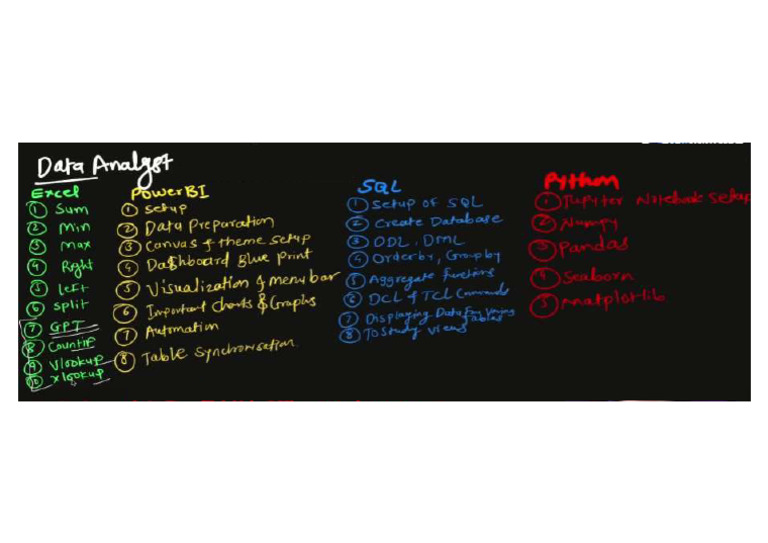 Data Analyst
Excel
① Sum
② Min
③ Max
④ Right
⑤ left
⑥ split
⑦ GPT
⑧ Countif
⑨ Vlookup
⑩ xlookup
PowerBI
① setup
② Data Preparation
③ Canvas & theme setup
④ Dashboard Blue Print
⑤ Visualization & menubar
⑥ Important charts & Graphs
⑦ Automation
⑧ Table Synchronisation
SQL
① Setup of SQL
② Create Database
③ DDL, DML
④ Orderby, Groupby
⑤ Aggregate Functions
⑥ DCL & TCL Commands
⑦ Displaying Data from Tables
⑧ To Study Views
Python
① Jupyter Notebook Setup
② Numpy
③ Pandas
④ Seaborn
⑤ matplotlib